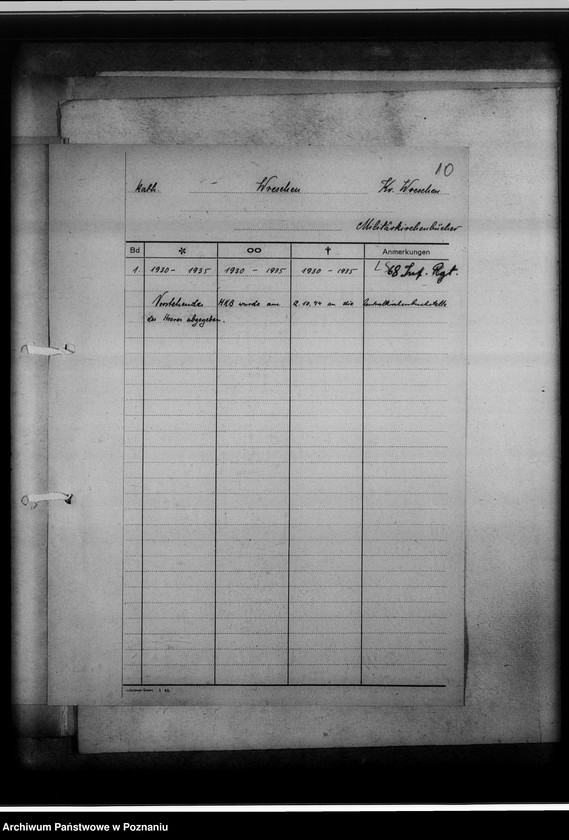 10
Kath. Wreschen Kr. Wreschen
Militärkirchenbücher
Bd * oo † Anmerkungen
1. 1930 - 1935 1930 - 1935 1930 - 1935 68 Inf. Rgt.
Vorstehendes MKB wurde am 2.10.44 an die Zentralkirchenbuchstelle
des Heeres abgegeben.
Archiwum Państwowe w Poznaniu